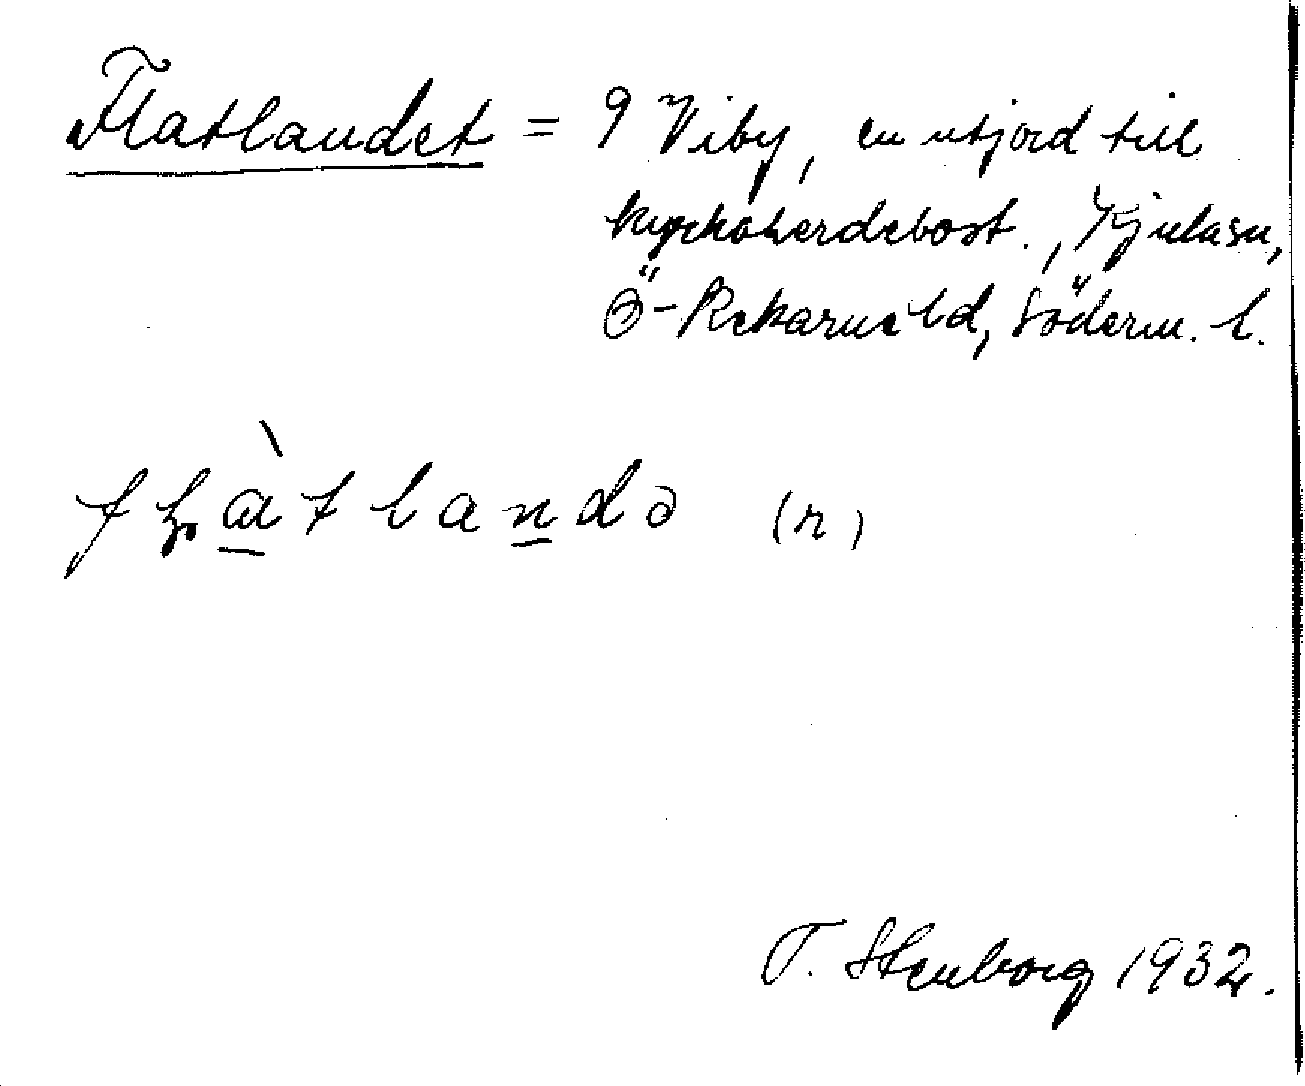 Flatlandet = 9 Viby, en utjord till
kyrkoherdebost., Kjulasn,
Ö-Rekarne hd, Söderm. l.
fḷàtlandə (n)
T. Stenborg 1932.